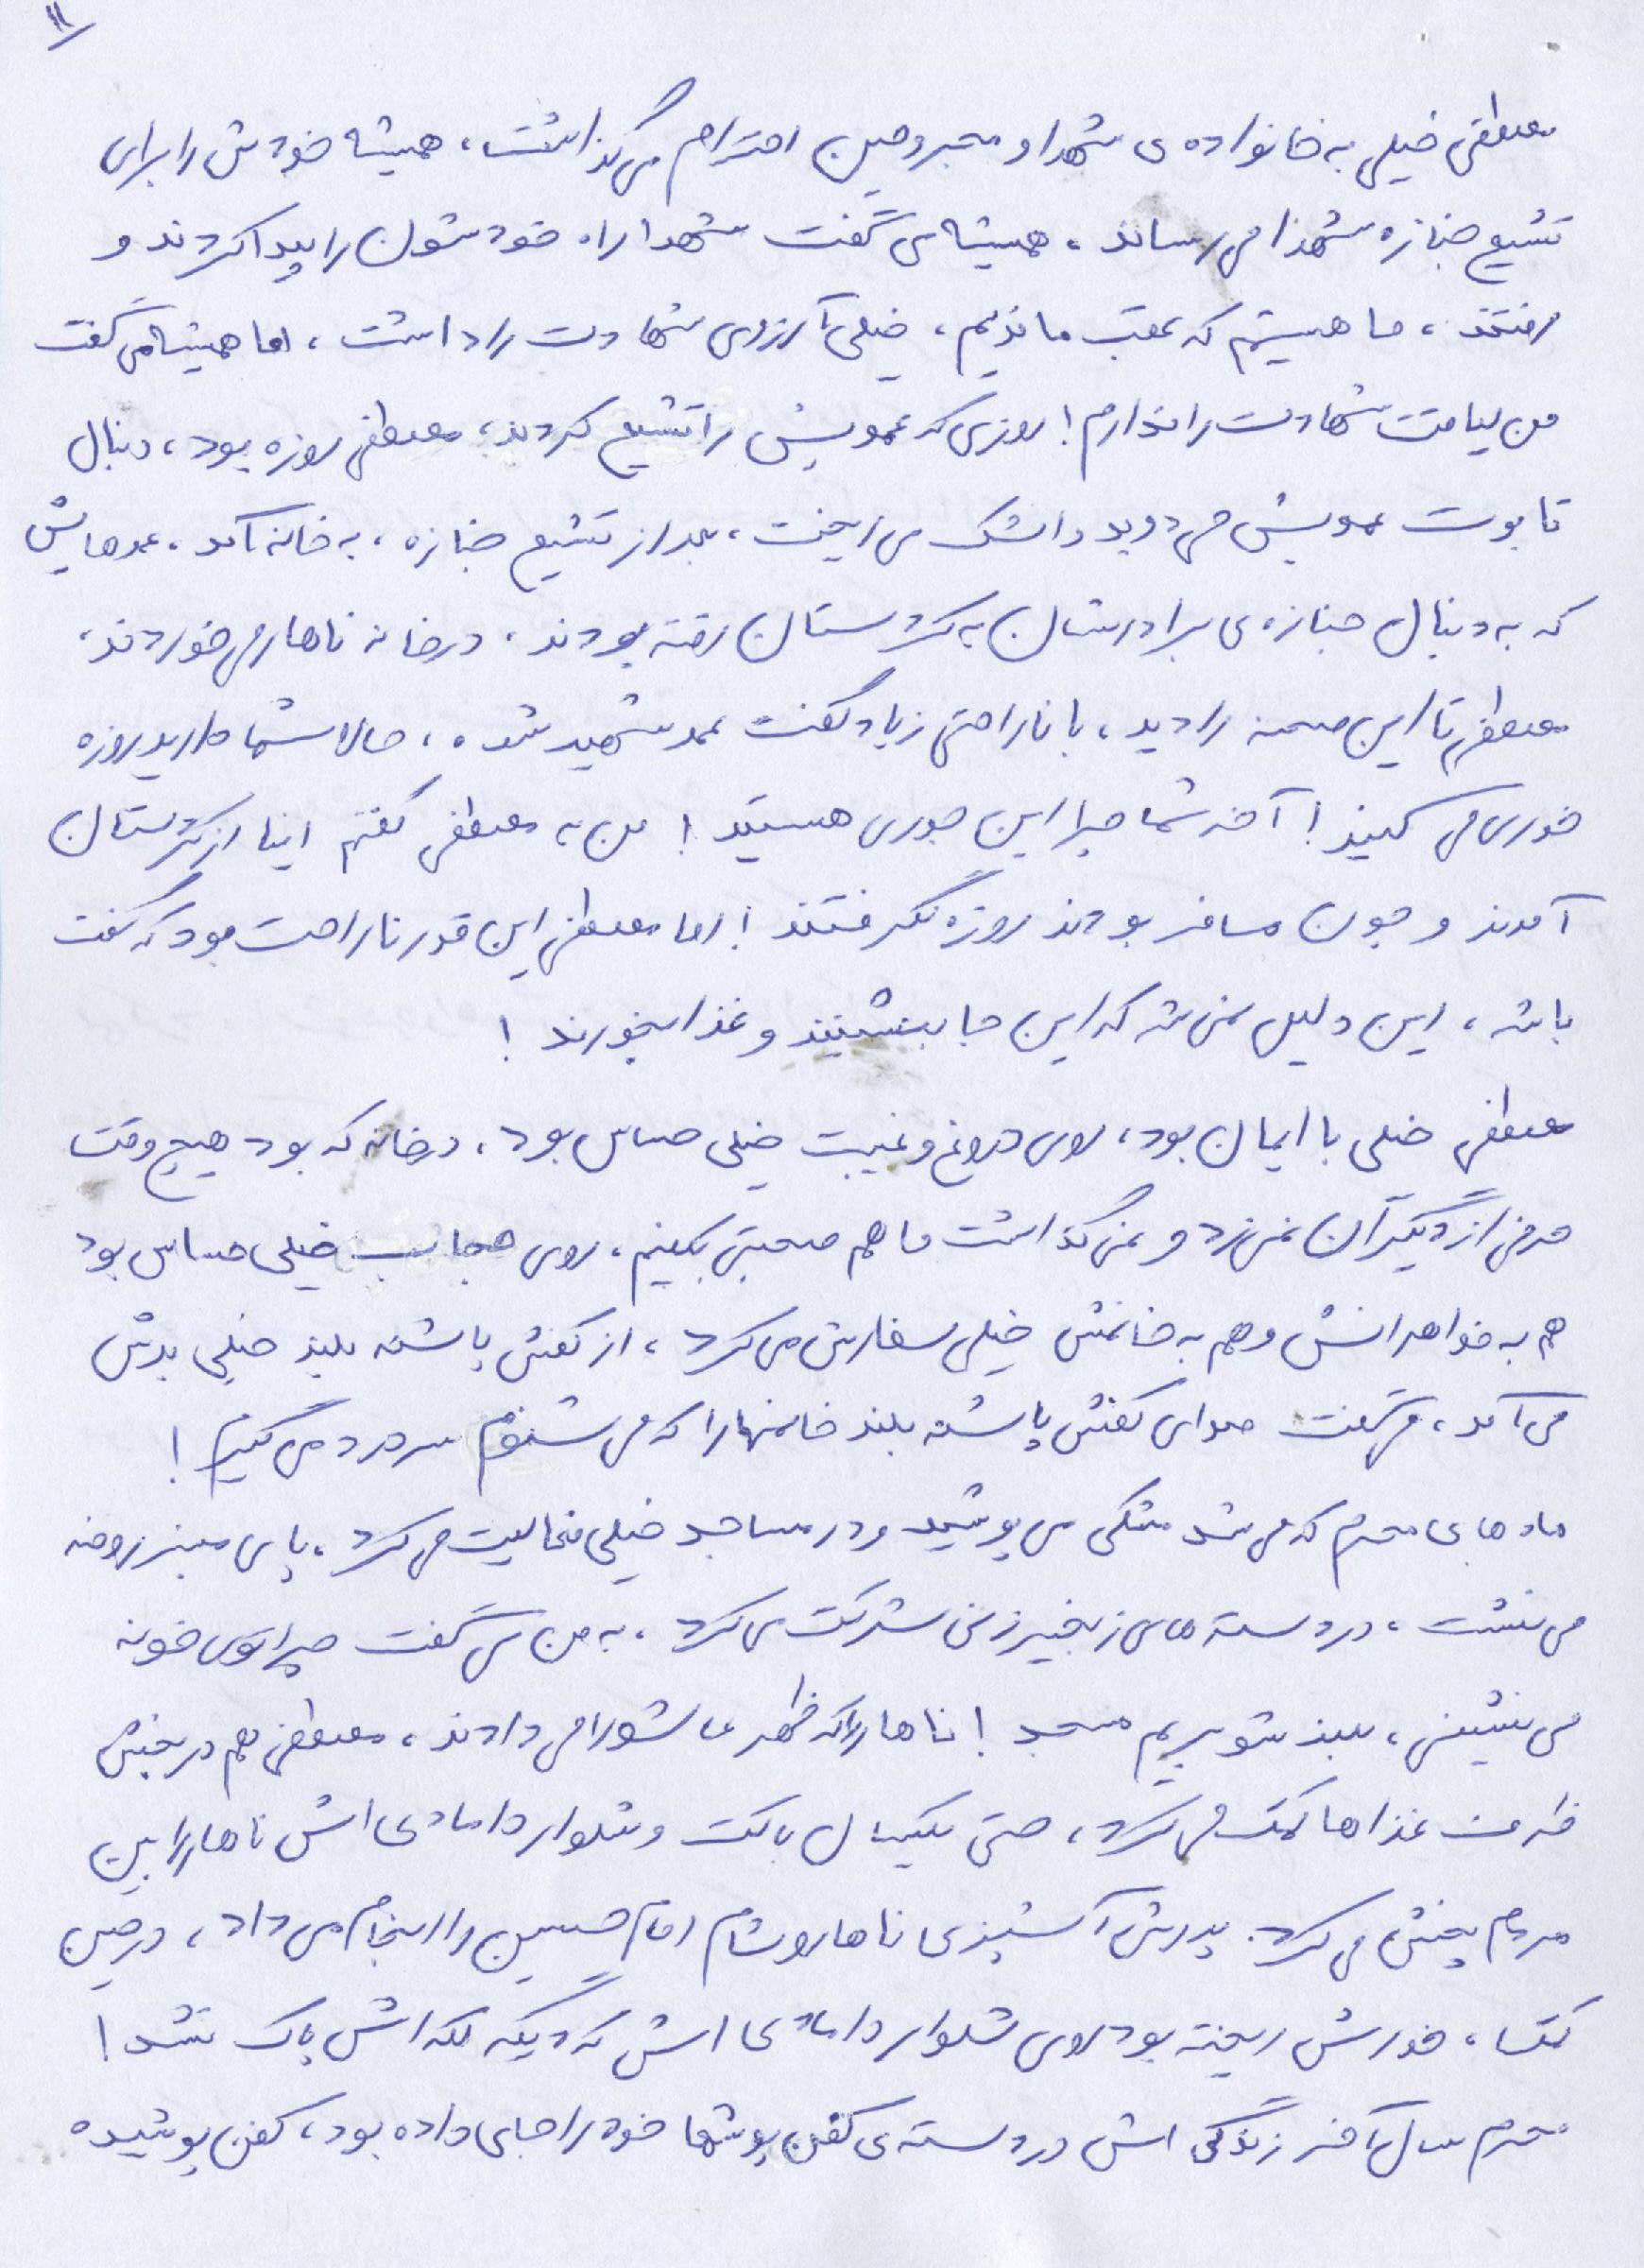 ۱۱
مصطفی خیلی به خانواده ی شهدا و مجروحین احترام می گذاشت، همیشه خودش را برای
تشیع جنازه شهدا می رساند، همیشه می گفت شهدا راه خودشون را پیدا کردند و
رفتند، ما هستیم که عقب ماندیم، خیلی آرزوی شهادت را داشت، اما همیشه می گفت
من لیاقت شهادت را ندارم! روزی که عمویش را تشیع کردند، مصطفی روزه بود، دنبال
تابوت عمویش می دوید و اشک می ریخت، بعد از تشیع جنازه، به خانه آمد، عموهایش
که به دنبال جنازه ی برادرشان به کردستان رفته بودند، در خانه ناهار می خوردند،
مصطفی تا این صحنه را دید، با ناراحتی زیاد گفت عمو شهید شده، حالا شما دارید روزه
خوری می کنید! آخه شما چرا این جوری هستید! من به مصطفی گفتم اینا از کردستان
آمدند و چون مسافر بودند روزه نگرفتند! اما مصطفی این قدر ناراحت بود که گفت
باشه، این دلیل نمی شه که این جا بنشینند و غذا بخورند!
مصطفی خیلی با ایمان بود، روی دروغ و غیبت خیلی حساس بود، در خانه که بود هیچ وقت
حرفی از دیگران نمی زد و نمی گذاشت ما هم صحبتی بکنیم، روی حجاب خیلی حساس بود
هم به خواهرانش و هم به خانمش خیلی سفارش می کرد، از کفش پاشنه بلند خیلی بدش
می آمد، می گفت صدای کفش پاشنه بلند خانمها را که می شنوم سردرد می گیرم!
ماه های محرم که می شد مشکی می پوشید و در مساجد خیلی فعالیت می کرد، پای منبر روضه
می نشست، در دسته های زنجیرزنی شرکت می کرد، به من می گفت چرا توی خونه
می نشینی، بلند شو بریم مسجد! ناهار را که ظهر عاشورا می دادند، مصطفی هم در پختن
غذاها کمک می کرد، حتی یکسال با کت و شلوار دامادی اش ناهار را بین
مردم پخش می کرد. پدرش آشپزی ناهار و شام امام حسین را انجام می داد، در حین
کمک، خورش ریخته بود روی شلوار دامادی اش که دیگه لکه اش پاک نشد!
محرم سال آخر زندگی اش در دسته ی کفن پوشها خود را جای داده بود، کفن پوشیده